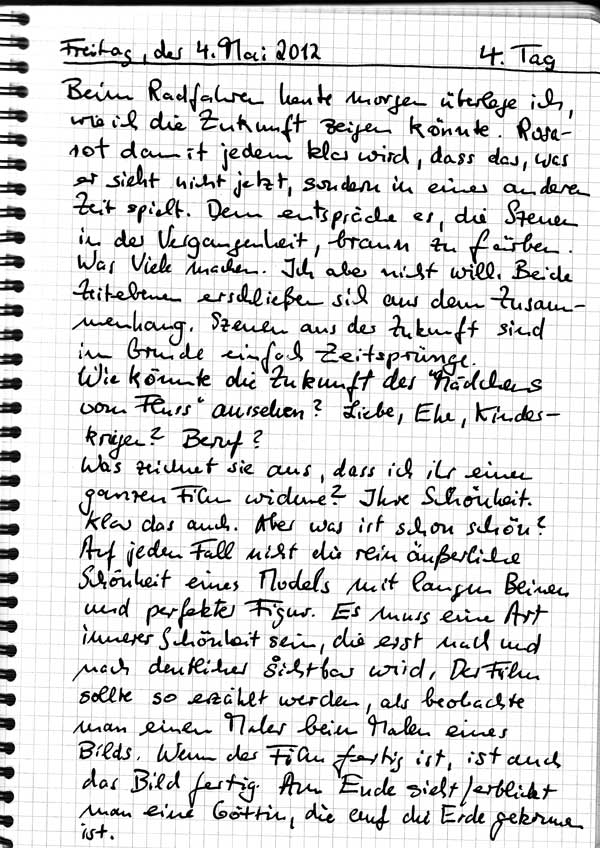 Freitag, der 4. Mai 2012 4. Tag
Beim Radfahren heute morgen überlege ich,
wie ich die Zukunft zeigen könnte. Rosa-
rot damit jedem klar wird, dass das, was
er sieht nicht jetzt, sondern in einer anderen
Zeit spielt. Dem entspräche es, die Szenen
in der Vergangenheit, braun zu färben.
Was Viele machen. Ich aber nicht will. Beide
Zeitebenen erschließen sich aus dem Zusam-
menhang. Szenen aus der Zukunft sind
im Grunde einfach Zeitsprünge.
Wie könnte die Zukunft des "Mädchens
vom Fluss" aussehen? Liebe, Ehe, Kinder-
kriegen? Beruf?
Was zeichnet sie aus, dass ich ihr einen
ganzen Film widme? Ihre Schönheit.
Klar das auch. Aber was ist schon schön?
Auf jeden Fall nicht die rein äußerliche
Schönheit eines Models mit langen Beinen
und perfekter Figur. Es muss eine Art
innerer Schönheit sein, die erst nach und
nach deutlicher sichtbar wird. Der Film
sollte so erzählt werden, als beobachte
man einen Maler beim Malen eines
Bilds. Wenn der Film fertig ist, ist auch
das Bild fertig. Am Ende sieht/erblickt
man eine Göttin, die auf die Erde gekommen
ist.